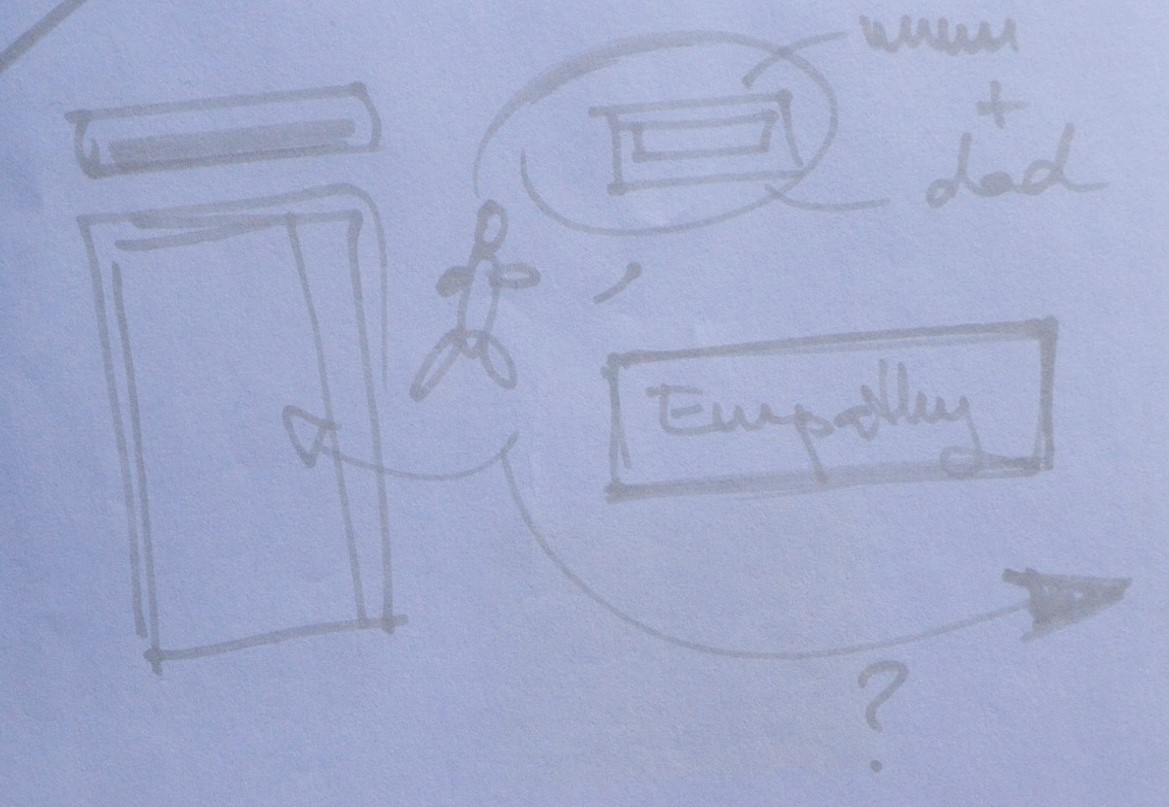 mum
+
dad
Empathy
?